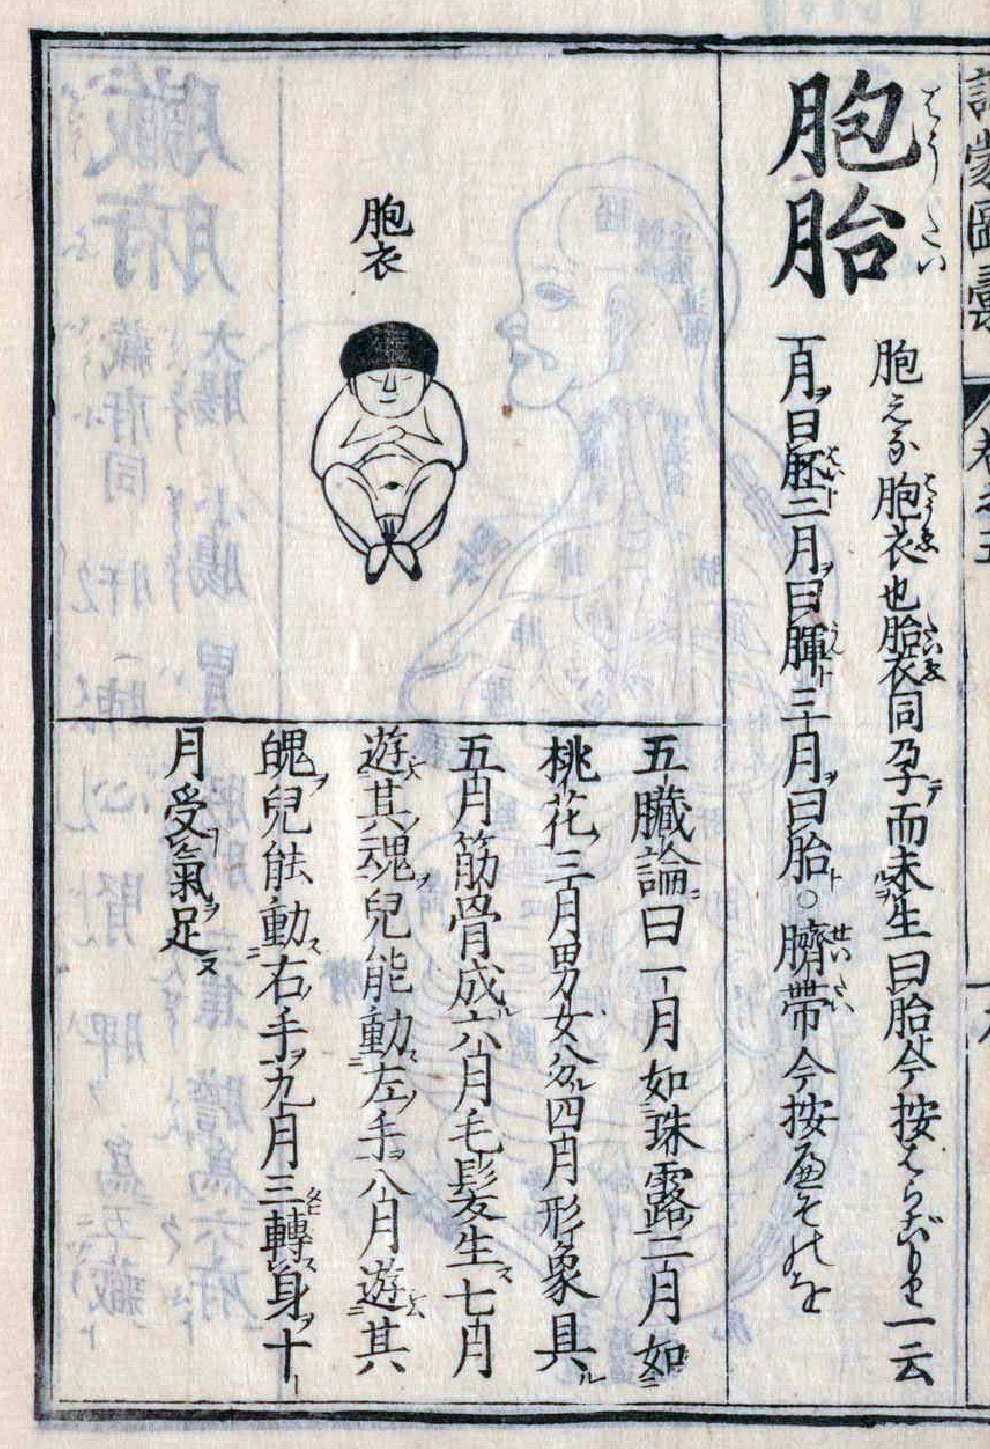 訓蒙圖彙
卷之五
胞胎
はうたい
胞えな胞衣也胎衣同孕而未生曰胎今按はらごもり一云
一月曰胚二月曰䐊三月曰胎○臍帶今按へそのを
胞衣
五臟論曰一月如珠露二月如
桃花三月男女分四月形象具
五月筋骨成六月毛髮生七月
遊其魂兒能動左手八月遊其
魄兒能動右手九月三轉身十
月受氣足